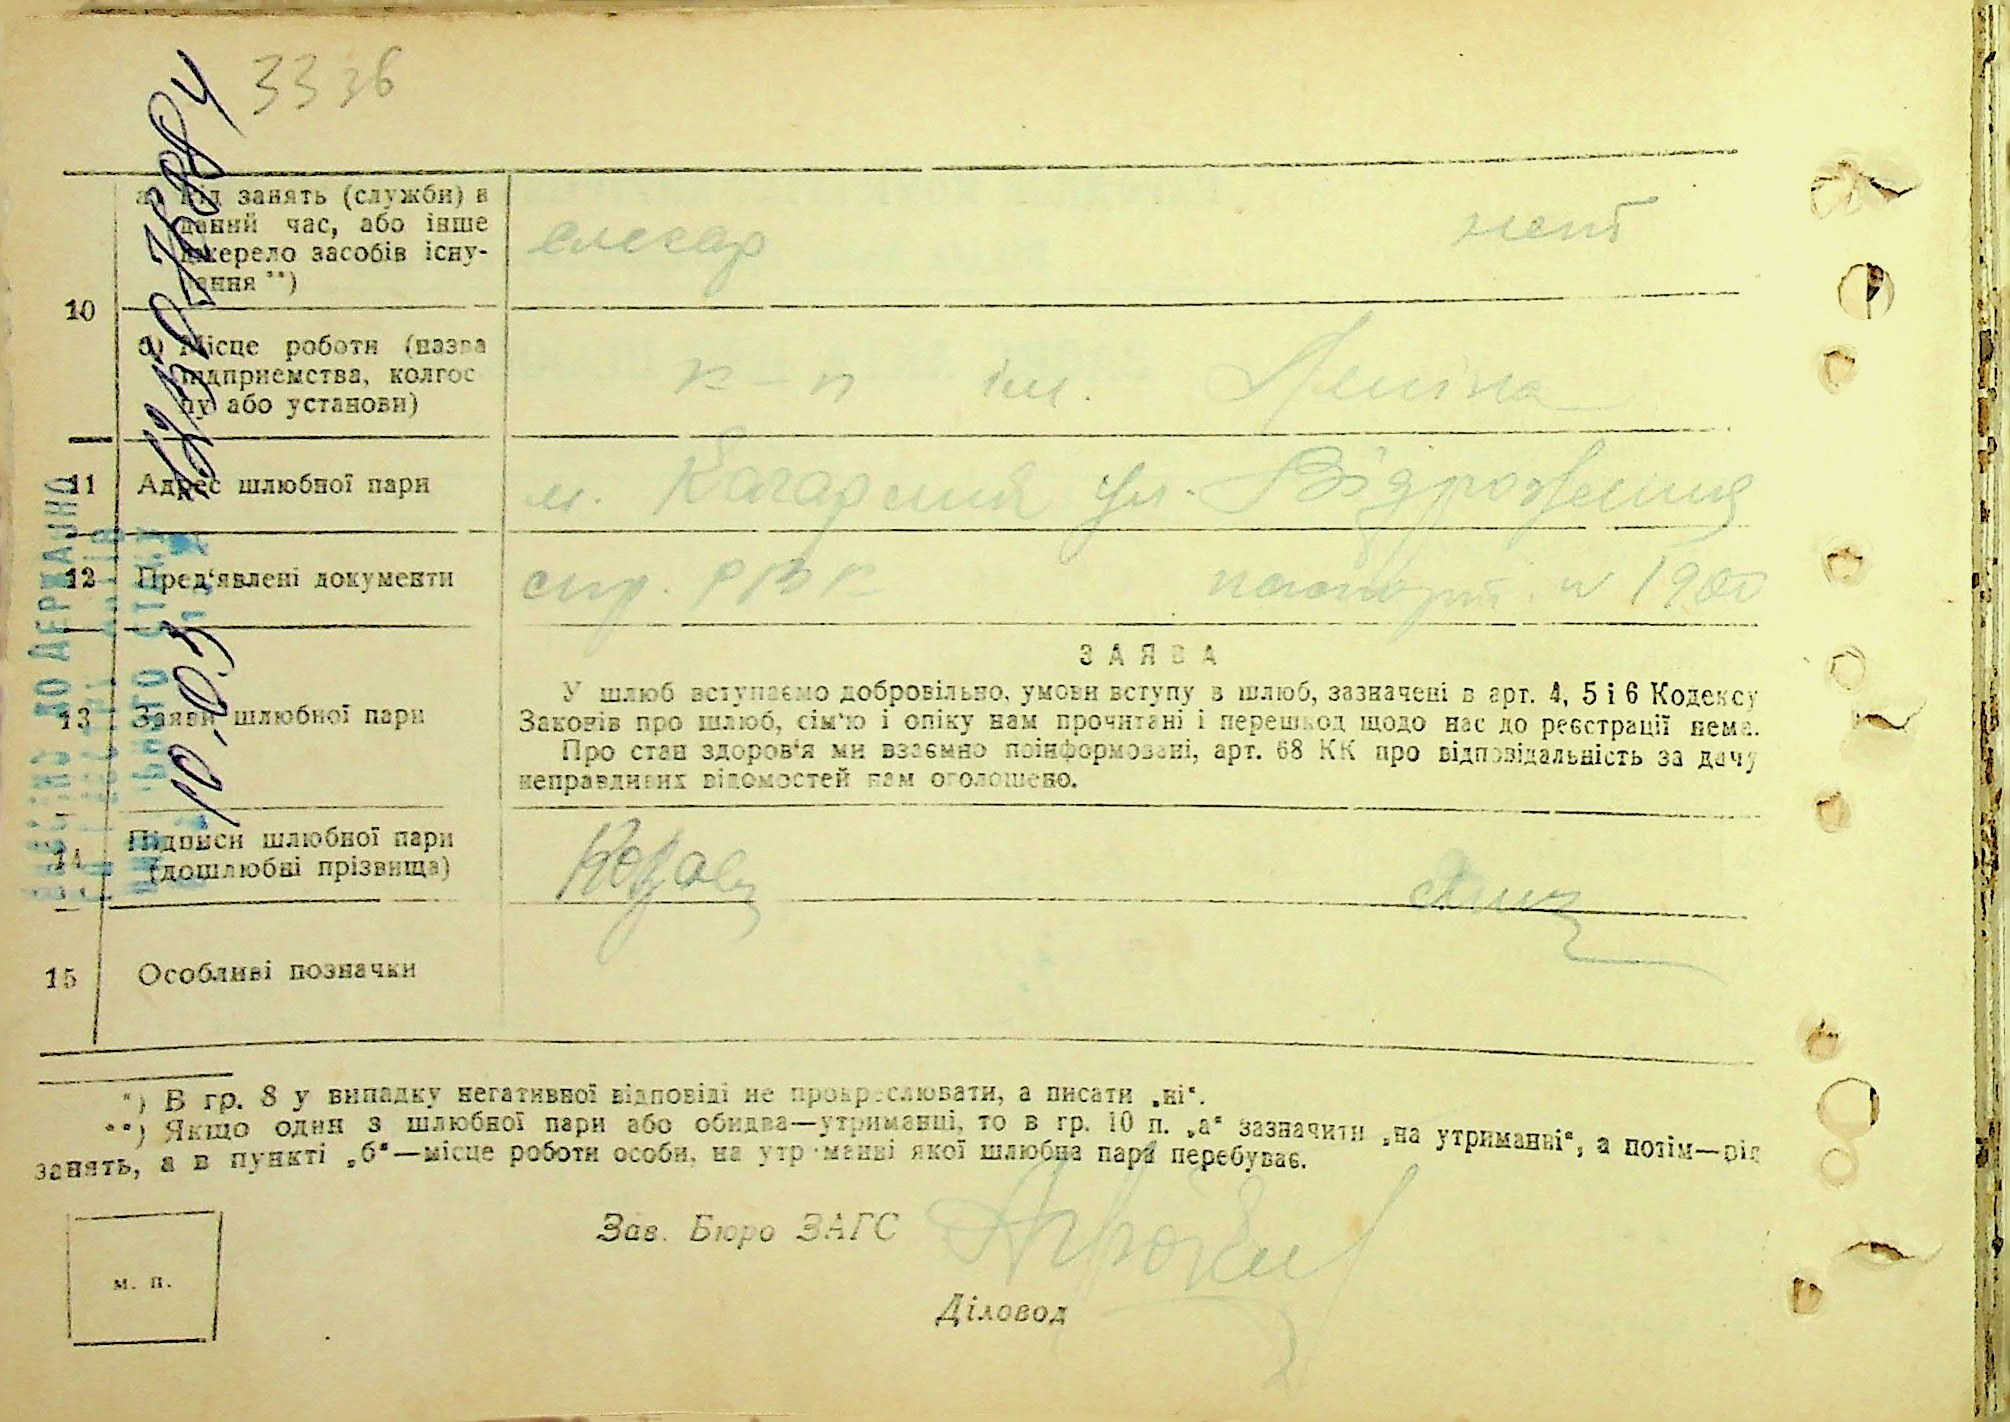 3336
10
а) Вид занять (служби) в
даний час, або інше
джерело засобів існу-
вання **)
слюсар
нет
б) Місце роботи (назва
підприємства, колгос
пу або установи)
к-п ім. Леніна
11 Адрес шлюбної пари
м. Кагарлик ул. Відродження
12 Пред'явлені документи
спр. РВК паспорт. N 1900
ЗАЯВА
13 Заяви шлюбної пари
У шлюб вступаємо добровільно, умови вступу в шлюб, зазначені в арт. 4, 5 і 6 Кодексу
Законів про шлюб, сім'ю і опіку нам прочитані і перешкод щодо нас до реєстрації нема.
Про стан здоров'я ми взаємно поінформовані, арт. 68 КК про відповідальність за дачу
неправдивих відомостей нам оголошено.
14 Підписи шлюбної пари
(дошлюбні прізвища)
15 Особливі позначки
*) В гр. 8 у випадку негативної відповіді не прокреслювати, а писати „ні“.
**) Якщо один з шлюбної пари або обидва—утриманці, то в гр. 10 п. „а“ зазначити „на утриманні“, а потім—від
занять, а в пункті „б“—місце роботи особи, на утриманні якої шлюбна пара перебуває.
Зав. Бюро ЗАГС
м. п.
Діловод